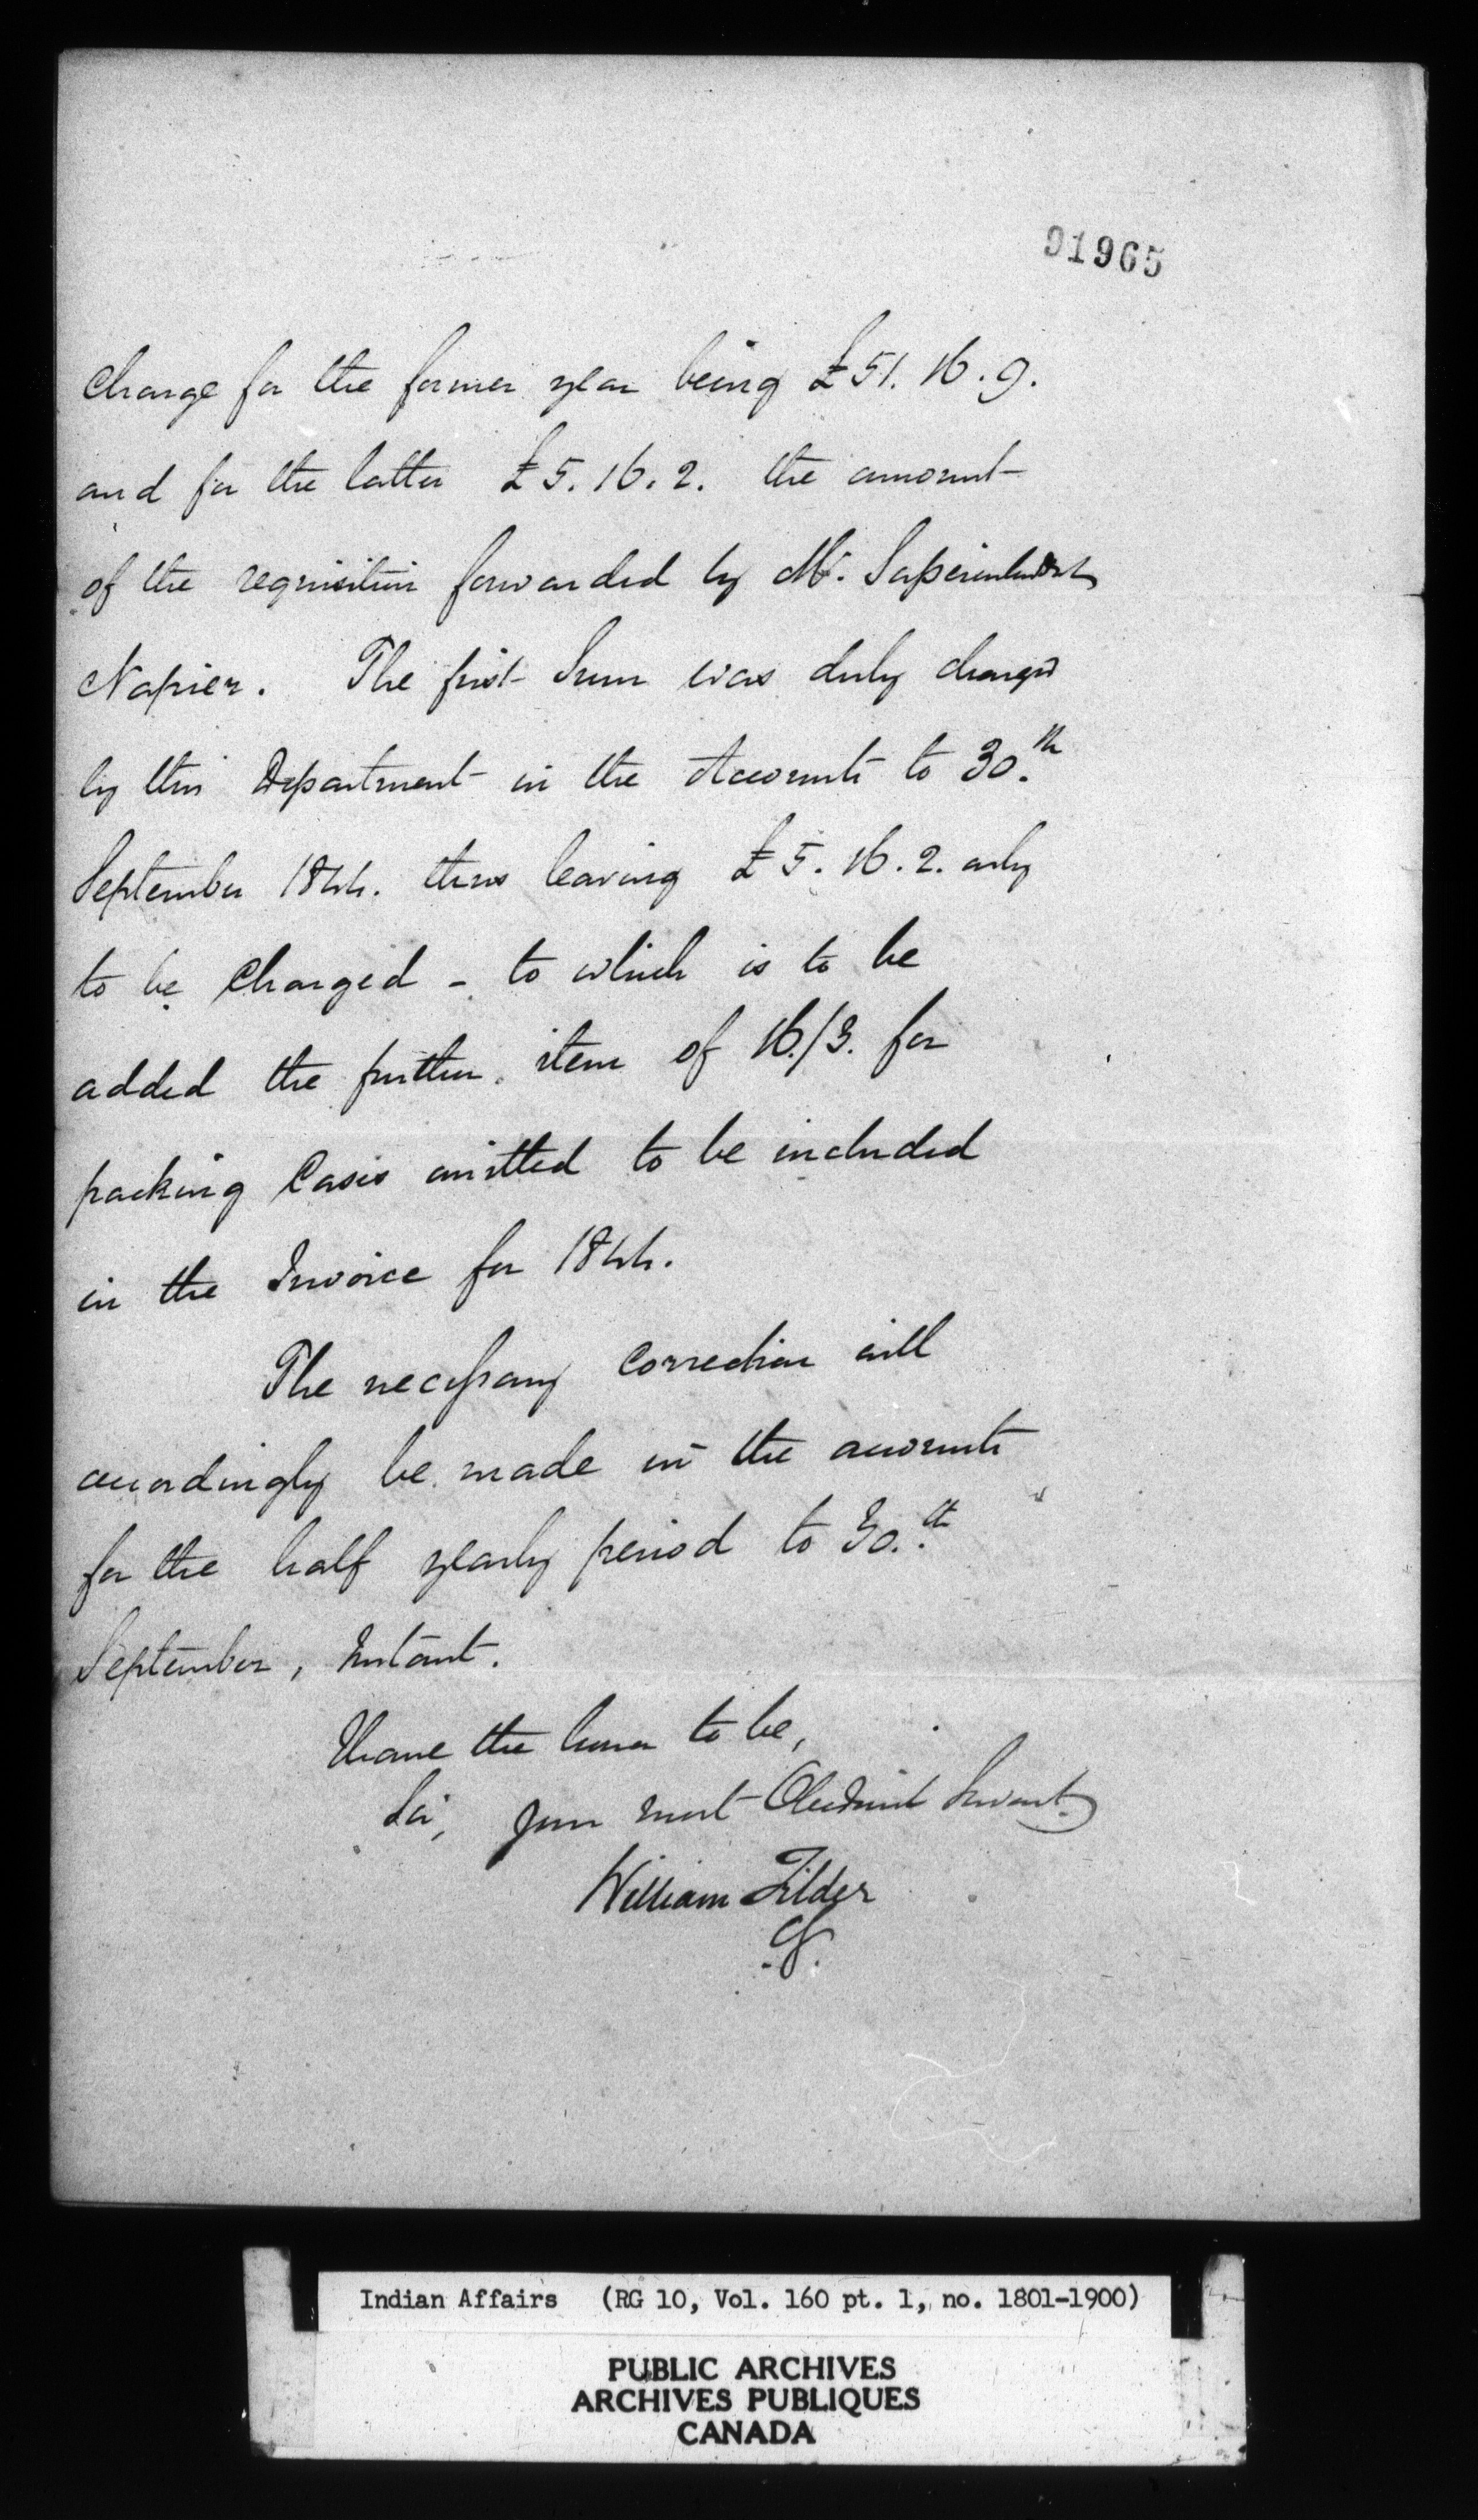 91965
Charge for the former year being £51. 16. 9.
and for the latter £5. 16. 2. the amount
of the requisition forwarded by Mr. Superintendent
Napier. The first Sum was duly charged
by this Department in the Accounts to 30.th
September 1844. thus leaving £5. 16. 2. only
to be Charged - to which is to be
added the further item of 16./3. for
packing Cases omitted to be included
in the Invoice for 1844.
The necessary Correction will
accordingly be made in the accounts
for the half yearly period to 30.th
September, Instant.
I have the honor to be,
Sir, your most Obedient Servant
William Filder
CG.
Indian Affairs (RG 10, Vol. 160 pt. 1, no. 1801-1900)
PUBLIC ARCHIVES
ARCHIVES PUBLIQUES
CANADA